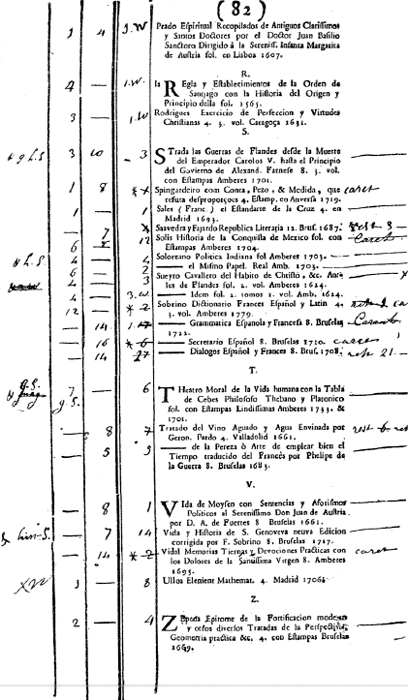 (82)
3 4 J.W Prado Espiritual Recopilados de Antiguos Clarissimos
y Santos Doctores por el Doctor Juan Basilio
Sanctoro Dirigido à la Sereniss. Infanta Margarita
de Austria fol. en Lisboa 1607.
R.
4 — 1.W. la Regla y Establecimientos de la Orden de
Santiago con la Historia del Origen y
Principio della fol. 1565.
3 1.W Rodrigues Exercicio de Perfeccion y Virtudes
Christianas 4. 3. vol. Caragoça 1631.
S.
3 10 — 3 STrada las Guerras de Flandes desde la Muerte
del Emperador Carolos V. hasta el Principio
del Govierno de Alexand. Farnese 8. 3. vol.
con Estampas Amberes 1701.
1 8 Spingardeiro com Conta, Pezo, & Medida, que caret
refuta desproporçoes 4. Estamp. en Anversa 1719.
1 — 1 Sales (Franc.) el Estandarte de la Cruz 4. en
Madrid 1693.
— 7 Saavedra y Fajardo Republica Literaria 12. Brus. 1687. rest 3 —
6 — 12 Solis Historia de la Conquista de Mexico fol. con caret
Estampas Amberes 1704.
4 — 4 Soloreano Politica Indiana fol Amberes 1703. —
4 — 2 — el Mismo Papel. Real Amb. 1703. —
4 — 2 Sueyro Cavallero del Habito de Christo, &c. Ana- x
les de Flandes fol. 2. vol. Amberes 1624.
4 — 3.W — Idem fol. 2. tomos 1. vol. Amb. 1624.
12 — 2 Sobrino Dictionario Frances Español y Latin 4.
3. vol. Amberes 1779.
— 14 — Grammatica Española y Francesa 8. Bruselas
1722.
— 16 — Secretario Español 8. Bruselas 1720. caret
— 14 — Dialogos Español y Frances 8 Brus. 1708. rest 21 —
T.
7 — 6 THeatro Moral de la Vida humana con la Tabla
de Cebes Philosofo Thebano y Platonico
fol. con Estampas Lindissimas Amberes 1733. &
1701.
— 8 Tratado del Vino Aguado y Agua Envinada por
Geron. Pardo 4. Valladolid 1661.
— 5 3 — de la Pereza ò Arte de emplear bien el
Tiempo traducido del Francés por Phelipe de
la Guerra 8. Bruselas 1685.
V.
— 8 1 VIda de Moysen con Sentencias y Aforismos
Politicos al Serenissimo Don Juan de Austria
por D. A. de Fuertes 8 Bruselas 1661.
— 7 14 Vida y Historia de S. Genoveva nueva Edicion
corrigida por F. Sobrino 8. Bruselas 1717.
— 14 2 Vidal Memorias Tiernas y Devociones Practicas con caret
los Dolores de la Santissima Virgen 8. Amberes
1695.
3 — 8 Ulloa Element Mathemat. 4. Madrid 1706.
Z.
2 — 4 ZEpeda Epitome de la Fortificacion moderna
y otros diversos Tratados de la Perspectiva,
Geometria practica &c. 4. con Estampas Bruselas
1669.